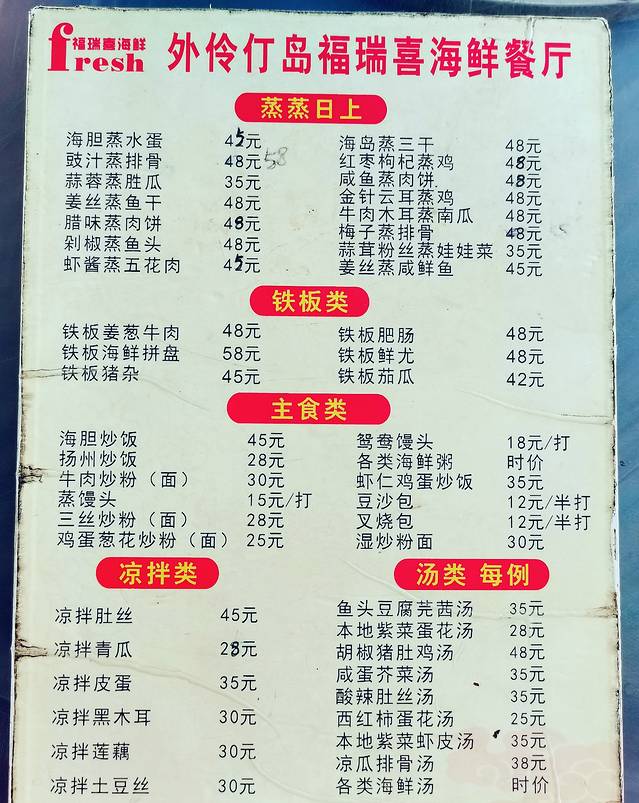 福瑞喜海鲜
fresh
外伶仃岛福瑞喜海鲜餐厅
蒸蒸日上
海胆蒸水蛋 45元
豉汁蒸排骨 48元 58
蒜蓉蒸胜瓜 35元
姜丝蒸鱼干 48元
腊味蒸肉饼 48元
剁椒蒸鱼头 48元
虾酱蒸五花肉 45元
海岛蒸三干 48元
红枣枸杞蒸鸡 48元
咸鱼蒸肉饼 48元
金针云耳蒸鸡 48元
牛肉木耳蒸南瓜 48元
梅子蒸排骨 48元
蒜茸粉丝蒸娃娃菜 35元
姜丝蒸咸鲜鱼 45元
铁板类
铁板姜葱牛肉 48元
铁板海鲜拼盘 58元
铁板猪杂 45元
铁板肥肠 48元
铁板鲜尤 48元
铁板茄瓜 42元
主食类
海胆炒饭 45元
扬州炒饭 28元
牛肉炒粉（面） 30元
蒸馒头 15元/打
三丝炒粉（面） 28元
鸡蛋葱花炒粉（面） 25元
鸳鸯馒头 18元/打
各类海鲜粥 时价
虾仁鸡蛋炒饭 35元
豆沙包 12元/半打
叉烧包 12元/半打
湿炒粉面 30元
凉拌类
凉拌肚丝 45元
凉拌青瓜 28元
凉拌皮蛋 35元
凉拌黑木耳 30元
凉拌莲藕 30元
凉拌土豆丝 30元
汤类 每例
鱼头豆腐芫茜汤 35元
本地紫菜蛋花汤 28元
胡椒猪肚鸡汤 48元
咸蛋芥菜汤 35元
酸辣肚丝汤 35元
西红柿蛋花汤 25元
本地紫菜虾皮汤 35元
凉瓜排骨汤 38元
各类海鲜汤 时价